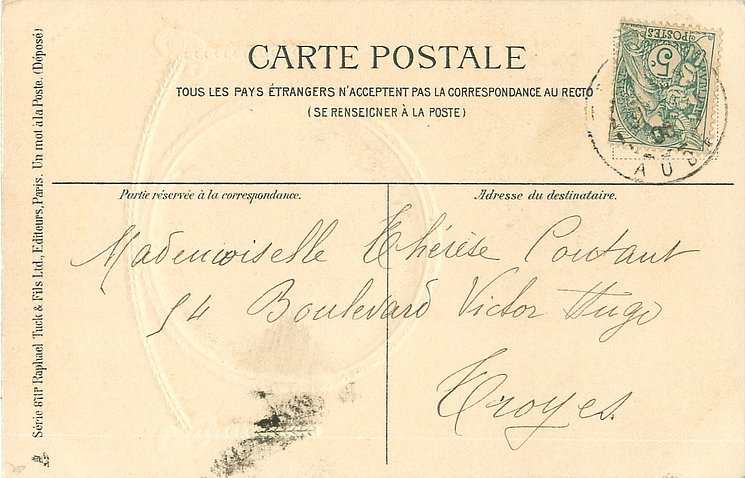 CARTE POSTALE
TOUS LES PAYS ÉTRANGERS N'ACCEPTENT PAS LA CORRESPONDANCE AU RECTO
(SE RENSEIGNER À LA POSTE)
POSTES
5
AUBE
Partie réservée à la correspondance.
Adresse du destinataire.
Mademoiselle Thérèse Coutant
54 Boulevard Victor Hugo
Troyes.
Série 871P Raphael Tuck & Fils Ltd., Editeurs, Paris. Un mot à la Poste. (Déposé)